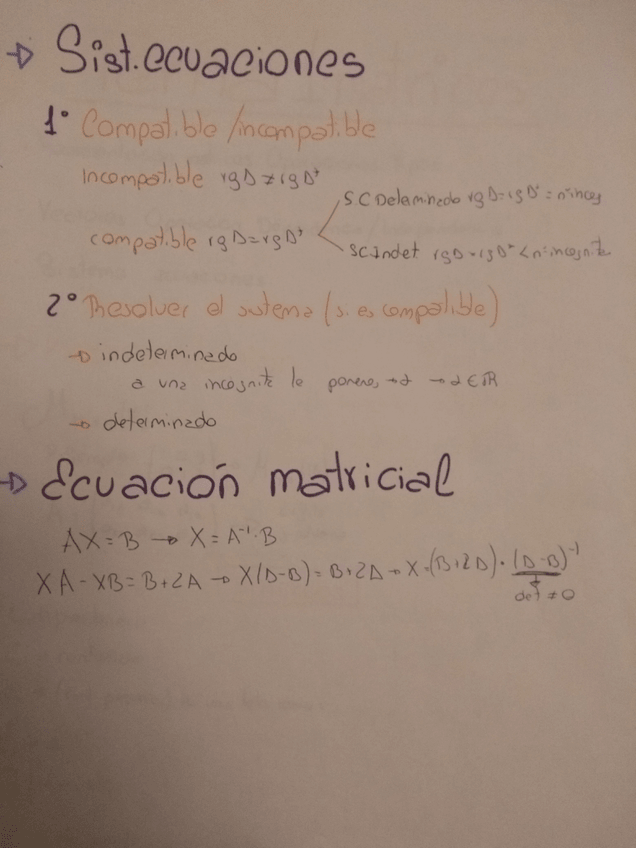 → Sist. ecuaciones
1° Compatible/incompatible
Incompatible rg A ≠ rg A*
compatible rg A = rg A*
S.C Determinado rg A = rg A* = nº incog
SC Indet rg A = rg A* < nº incognita
2° Resolver el sistema (si es compatible)
→ indeterminado
a una incognita le ponemos → α → α ∈ ℝ
→ determinado
→ Ecuación matricial
AX = B → X = A⁻¹·B
XA - XB = B + 2A → X(A-B) = B+2A → X = (B+2A)·(A-B)⁻¹
det ≠ 0